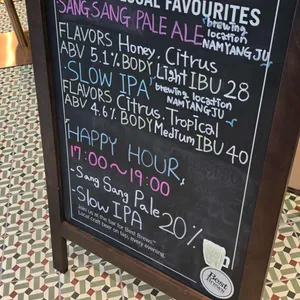 LOCAL FAVOURITES
SANG SANG PALE ALE brewing location NAMYANGJU
FLAVORS Honey, Citrus
ABV 5.1% BODY Light IBU 28
SLOW IPA brewing location NAMYANGJU
FLAVORS Citrus, Tropical
ABV 4.6% BODY Medium IBU 40
HAPPY HOUR
17:00~19:00
- Sang Sang Pale
- Slow IPA 20%
Join us at the bar for Best Brews™
Local craft beer on tap, every evening.
Best Brews